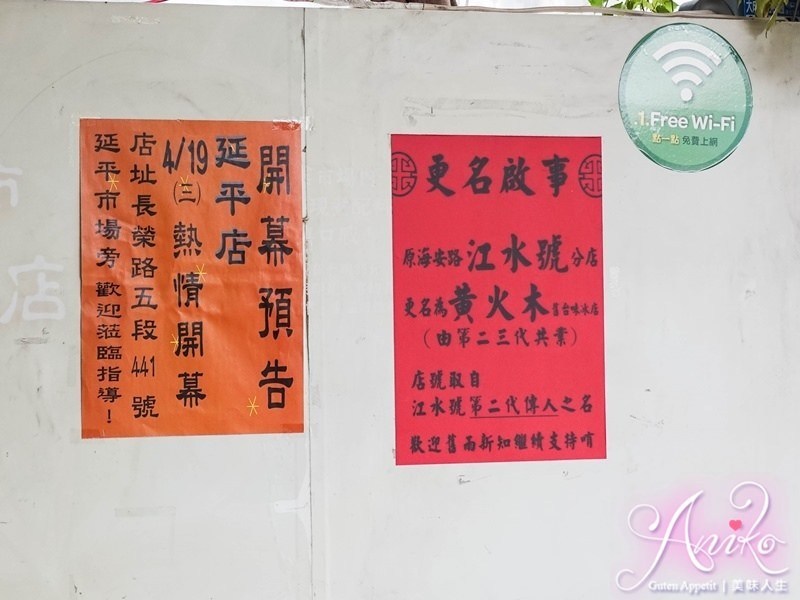 開幕預告
延平店
4/19(三)熱情開幕
店址長榮路五段441號
延平市場旁 歡迎蒞臨指導！
更名啟事
原海安路江水號分店
更名為黃火木舊台味冰店
（由第二三代共業）
店號取自
江水號第二代傳人之名
歡迎舊雨新知繼續支持唷
.1.Free Wi-Fi
點一點 免費上網
店
Aniko
Guten Appetit | 美味人生